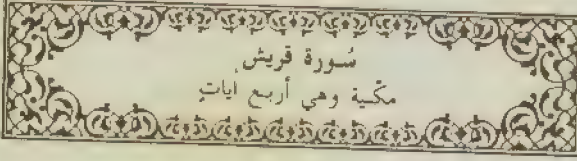 سُورة قريش
مكّية وهي أربع اياتٍ